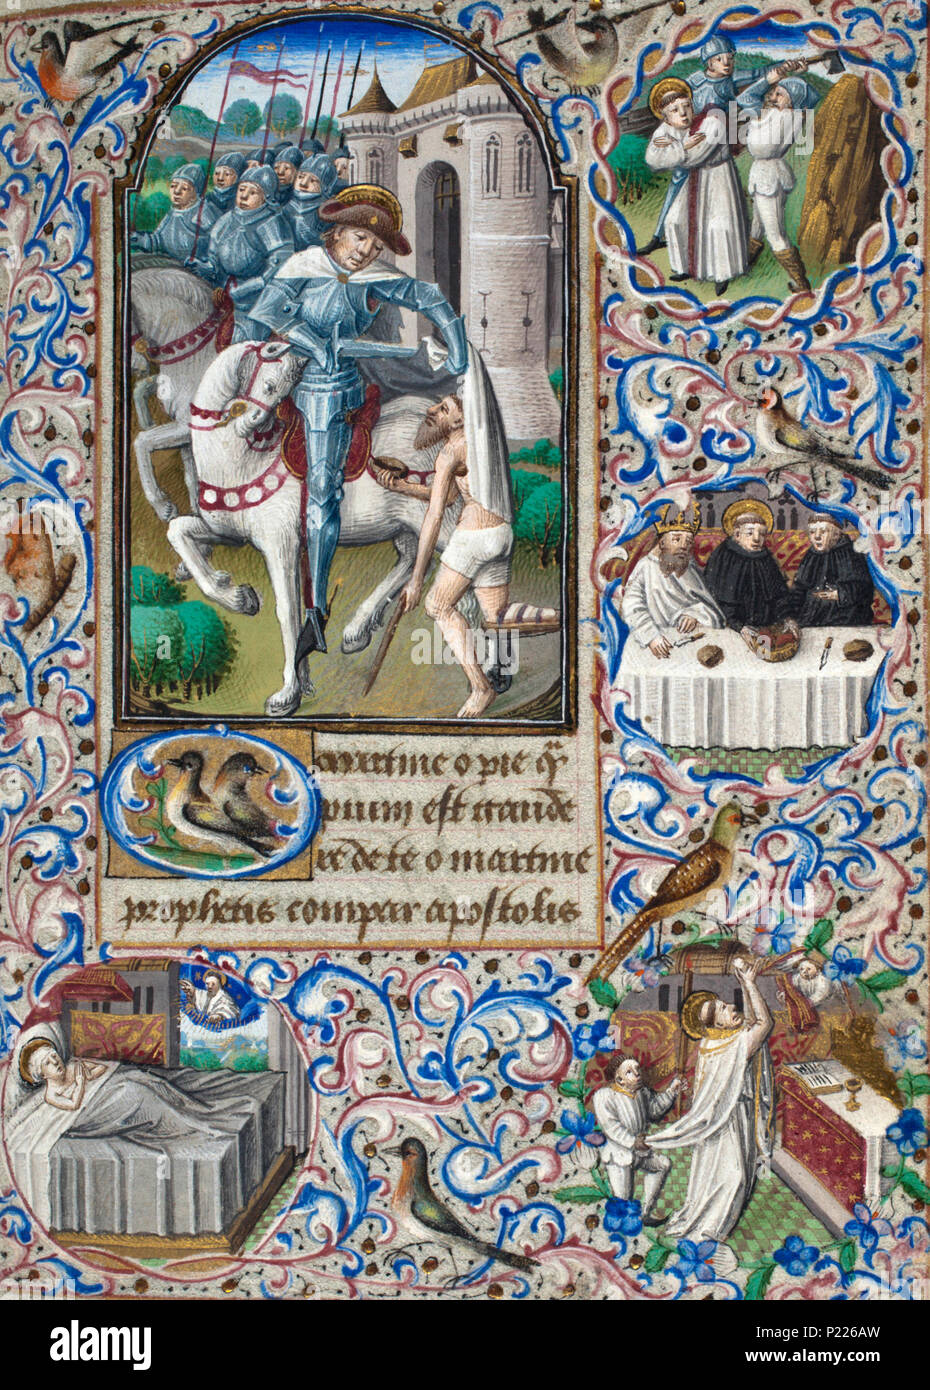 O martine o pie q̄
pium est gaude
re de te o martine
prophetis compar apostolis
alamy
Image ID: P226AW
www.alamy.com